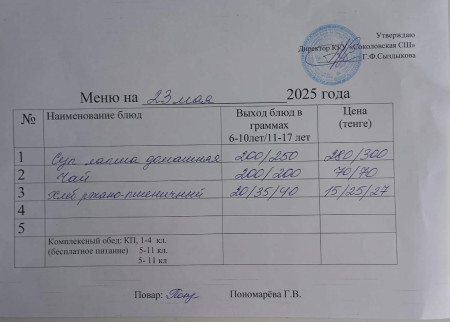 Утверждаю
Директор КГУ «Соколовская СШ»
Г.Ф.Сыздыкова
Меню на 23 мая 2025 года
№ Наименование блюд Выход блюд в граммах 6-10лет/11-17 лет Цена (тенге)
1 Суп лапша домашняя 200/250 280/300
2 Чай 200/200 70/70
3 Хлеб ржано-пшеничный 20/35/40 15/25/27
4
5
Комплексный обед: КП, 1-4 кл.
(бесплатное питание) 5-11 кл.
5- 11 кл
Повар: Пономарёва Г.В.